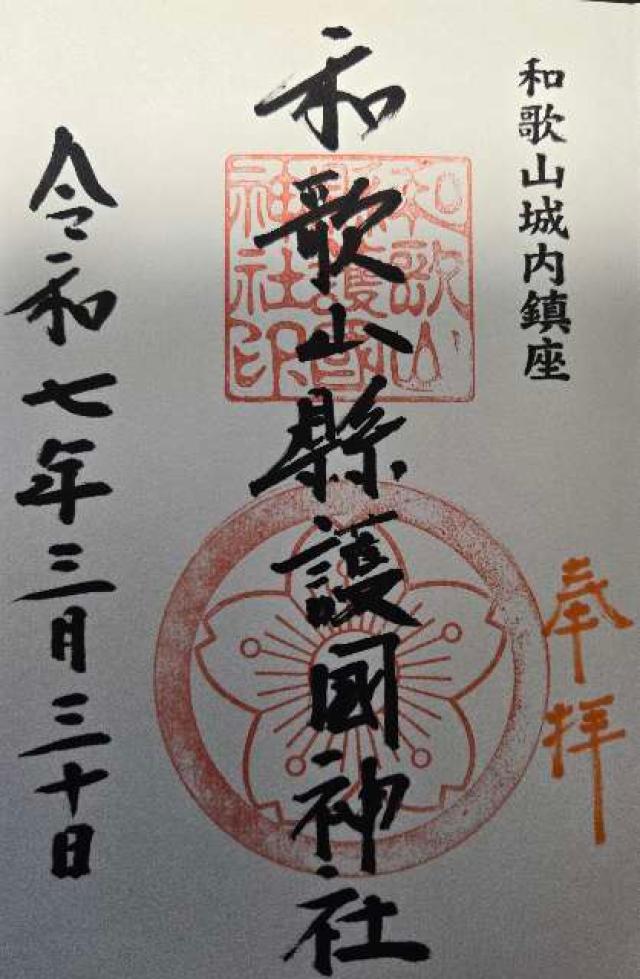 和歌山城内鎮座
奉拝
和歌山縣護國神社
和歌山
縣護國
神社印
令和七年三月三十日